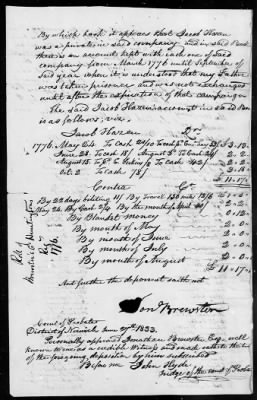 By which book it appears that Jacob Hazen
was a private in said company and in said Book
there is an account kept with each one of said
company from March 1776 until September of
said year when it is understood that my Father
was taken prisoner and was not exchanged
until after the expiration of that campaign
The said Jacob Hazen's account in said Book
is as follows, viz.
Jacob Hazen Dr
1776. May 24. To cash
June 28. To cash 18/ August 5th To Cash
August 15. To To cash 42/
Oct 2 To cash 78/
£ 11.17.
Contra Cr
By 22 days billeting By Travel 130 miles
May 24. By Cash By the month of April
By Blanket money 0.12.
By month of May 2.0.
By month of June 2.0.
By month of July 2.0.
By month of August 2.0.
£ 11.17.
And further the deponent saith not
Jona Brewster
Court of Probate
District of Norwich June 27th 1833.
Personally appeared Jonathan Brewster Esq. well
known to me as a credible witness and made oath to the truth
of the foregoing deposition by him subscribed
Before me John Hyde
Judge of the court of Probate